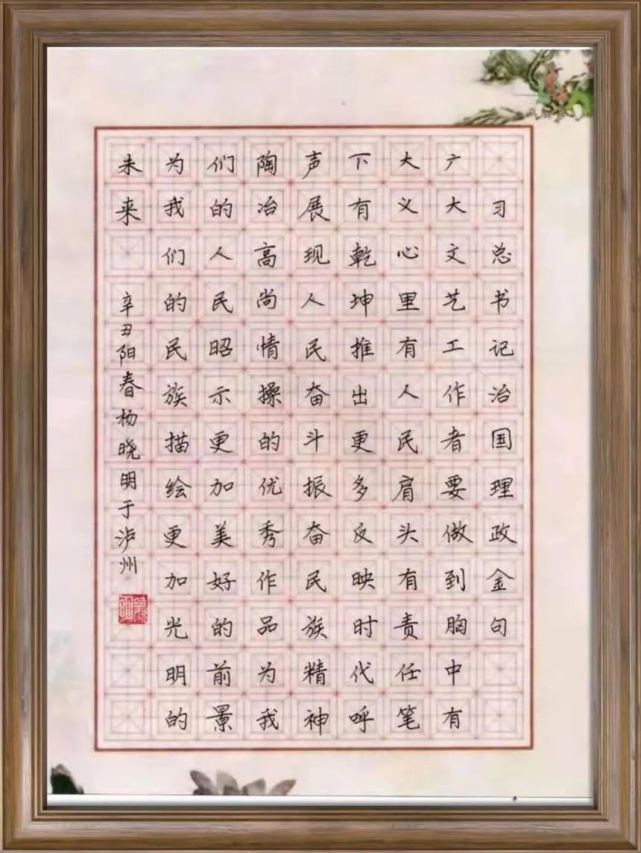 习总书记治国理政金句
广大文艺工作者要做到胸中有
大义心里有人民肩头有责任笔
下有乾坤推出更多反映时代呼
声展现人民奋斗振奋民族精神
陶冶高尚情操的优秀作品为我
们的人民昭示更加美好的前景
为我们的民族描绘更加光明的
未来
辛丑阳春杨晓明于泸州